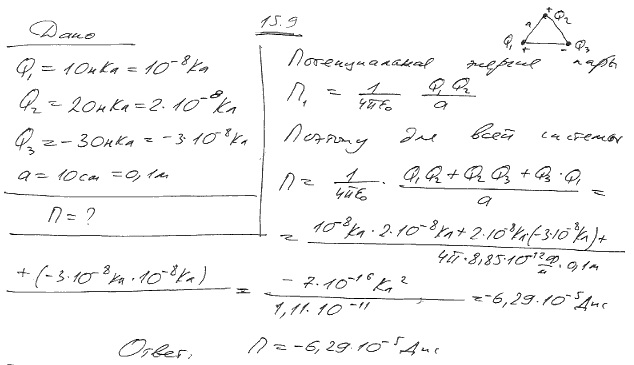 15.9
Дано
Q₁ = 10нКл = 10⁻⁸Кл
Q₂ = 20нКл = 2·10⁻⁸Кл
Q₃ = −30нКл = −3·10⁻⁸Кл
a = 10см = 0,1м
П = ?
+ a Q₂
Q₁ + − Q₃
Потенциальная энергия пары
П₁ = 1/4πε₀ Q₁Q₂/a
Поэтому для всей системы
П = 1/4πε₀ · Q₁Q₂ + Q₂Q₃ + Q₃·Q₁/a =
= 10⁻⁸Кл · 2·10⁻⁸Кл + 2·10⁻⁸Кл(−3·10⁻⁸Кл) +
+ (−3·10⁻⁸Кл · 10⁻⁸Кл)/4π · 8,85·10⁻¹² Ф/м · 0,1м = −7·10⁻¹⁶Кл²/1,11·10⁻¹¹ = −6,29·10⁻⁵Дж
Ответ: П = −6,29·10⁻⁵Дж